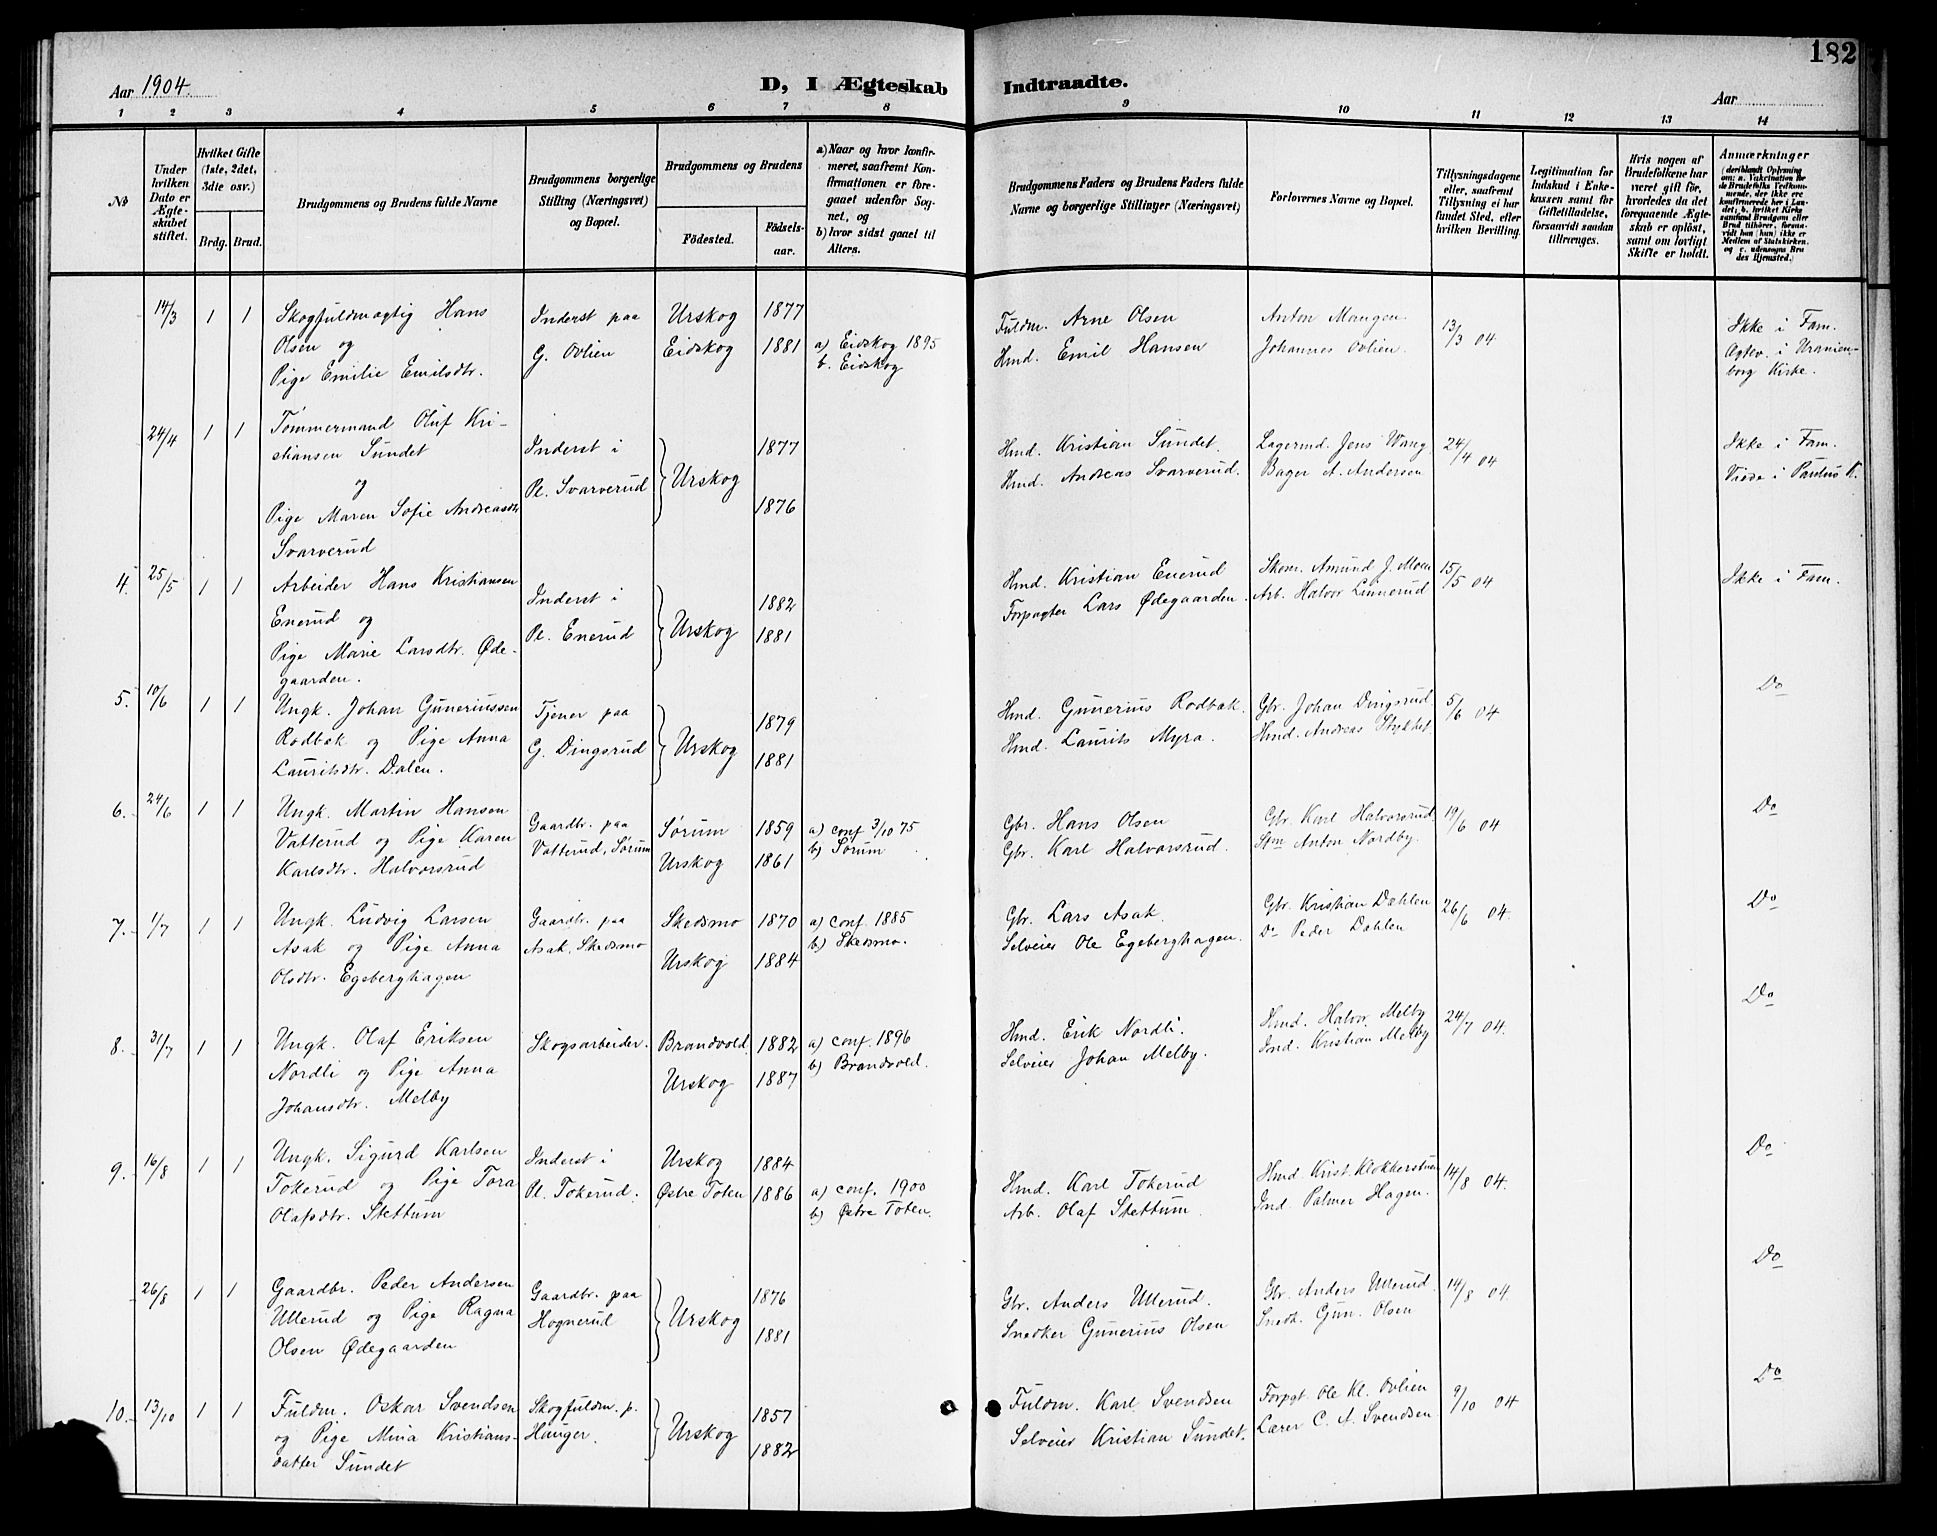 182
Aar 1904.
D, I Ægteskab Indtraadte.
Aar
1 2 3 4 5 6 7 8 9 10 11 12 13 14
No
Under hvilken Dato er Ægteskabet stiftet.
Hvilket Gifte (1ste, 2det, 3die osv.)
Brdg. Brud.
Brudgommens og Brudens fulde Navne
Brudgommens borgerlige Stilling (Næringsvei) og Bopæl.
Brudgommens og Brudens
Fødested. Fødselsaar.
a) Naar og hvor konfirmeret, saafremt Konfirmationen er foregaaet udenfor Sognet, og
b) hvor sidst gaaet til Alters.
Brudgommens Faders og Brudens Faders fulde Navne og borgerlige Stillinger (Næringsvei)
Forlovernes Navne og Bopæl.
Tillysningsdagene eller, saafremt Tillysning ei har fundet Sted, efter hvilken Bevilling.
Legitimation for Indskud i Enkekassen samt for Giftetilladelse, forsaavidt saadan tiltrænges.
Hvis nogen af Brudefolkene har været gift før, hvorledes da det foregaaende Ægteskab er opløst, samt om lovligt Skifte er holdt.
Anmærkninger
14/3 1 1 Skogfuldmægtig Hans Inderst paa Urskog 1877 Fuldm. Arne Olsen Anton Mangen 13/3 04 Ikke i Fam.
Olsen og G. Ovlien Eidskog 1881 a) Eidskog 1895 Hmd. Emil Hansen Johannes Ovlien. Ægtev. i Uranien-
Pige Emilie Emilsdtr. b. Eidskog borg Kirke.
24/4 1 1 Tømmermand Oluf Kri- Inderst i Urskog 1877 Hmd. Kristian Sundet Lagermd. Jens Wang 24/4 04 Ikke i Fam.
stiansen Sundet Pl. Svarverud 1876 Hmd. Andreas Svarverud. Bager A. Andersen Viede i Paulus K.
og
Pige Maren Sofie Andreasdtr
Svarverud
4. 25/5 1 1 Arbeider Hans Kristiansen Inderst i Urskog 1882 Hmd. Kristian Enerud Skom. Amund J. Moen 15/5 04 Ikke i Fam.
Enerud og Pl. Enerud 1881 Forpagter Lars Ødegaarden. Arb. Halvor Linnerud
Pige Marie Larsdtr. Øde-
gaarden.
5. 10/6 1 1 Ungk. Johan Guneriussen Tjener paa Urskog 1879 Hmd. Gunerius Rodbæk. Gbr. Johan Dingsrud 5/6 04 Do
Rodbæk og Pige Anna G. Dingsrud 1881 Hmd. Laurits Myra. Hmd. Andreas Stykket.
Lauritsdtr. Dalen.
6. 24/6 1 1 Ungk. Martin Hansen Gaardbr. paa Sørum 1859 a) conf 3/10 75 Gbr. Hans Olsen Gbr. Karl Halvorsrud 19/6 04 Do
Vatterud og Pige Karen Vatterud, Sørum Urskog 1861 b) Sørum Gbr. Karl Halvorsrud. Stm Anton Nordby.
Karlsdtr. Halvorsrud
7. 1/7 1 1 Ungk. Ludvig Larsen Gaardbr. paa Skedsmo 1870 a) conf. 1885 Gbr. Lars Asak. Gbr. Kristian Dæhlen 26/6 04. Do
Asak og Pige Anna Asak, Skedsmo Urskog 1884 b) Skedsmo. Selveier Ole Egeberghagen. Do Peder Dahlen
Olsdtr. Egeberghagen
8. 31/7 1 1 Ungk. Olaf Eriksen Skogsarbeider. Brandvold 1882 a) conf. 1896 Hmd. Erik Nordli. Hmd. Halvor Melby 24/7 04. Do
Nordli og Pige Anna Urskog 1887 b) Brandvold. Selveier Johan Melby. Ind. Kristian Melby
Johansdtr. Melby
9. 16/8 1 1 Ungk. Sigurd Karlsen Inderst i Urskog 1884 Hmd. Karl Tokerud Hmd. Krist. Klokkerstuen 14/8 04. Do
Tokerud og Pige Tora Pl. Tokerud. Østre Toten 1886 a) conf. 1900 Arb. Olaf Stettum Ind. Palmer Hagen.
Olafsdtr. Stettum b) Østre Toten.
26/8 1 1 Gaardbr. Peder Andersen Gaardbr. paa Urskog 1876 Gbr. Anders Ullerud. Gbr. Anders Ullerud 14/8 04. Do
Ullerud og Pige Ragna Hognerud 1881 Snedker Gunerius Olsen Snedk. Gun. Olsen
Olsen Ødegaarden
10. 13/10 1 1 Fuldm. Oskar Svendsen Skogfuldm. p. Urskog 1857 Fuldm. Karl Svendsen Forpgt. Ole Kl. Ovlien 9/10 04 Do
og Pige Mina Kristians- Haneger. 1882 Selveier Kristian Sundet. Lærer C. A. Svendsen
datter Sundet